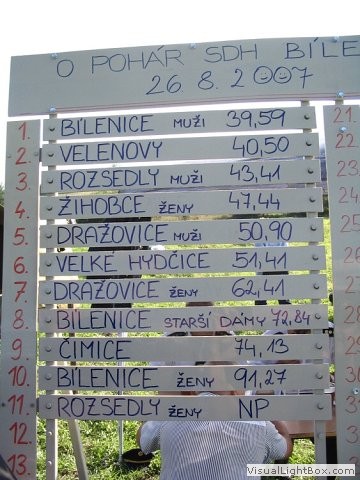 O POHÁR SDH BÍLE
26 8. 2007
1. BÍLENICE MUŽI 39,59
2. VELENOVY 40,50
3. ROZSEDLY MUŽI 43,41
4. ŽIHOBCE ŽENY 47,44
5. DRAŽOVICE MUŽI 50,90
6. VELKÉ HYDČICE 51,41
7. DRAŽOVICE ŽENY 62,41
8. BÍLENICE STARŠÍ DÁMY 72,84
9. ČÍMICE 74,13
10. BÍLENICE ŽENY 91,27
11. ROZSEDLY ŽENY NP
12.
13.
21.
22.
VisualLightBox.com